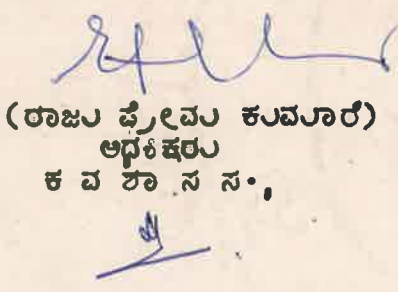 (ರಾಜು ಪ್ರೇಮ ಕುಮಾರ್)
ಅಧ್ಯಕ್ಷರು
ಕ ವ ಶಾ ಸ ಸ.,